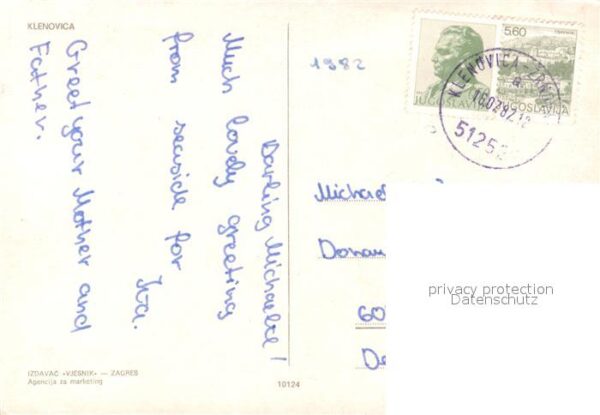 KLENOVICA
Darling Michaela!
Much lovely greeting
from seaside for
Iva.
Greet your Mother and
Father.
1982
5.60
JUGOSLAVIJA
JUGOSLAVIJA
KLENOVICA
16.07.82.12
5125
Michae
Donau
60
De
privacy protection
Datenschutz
IZDAVAČ «VJESNIK» — ZAGREB
Agencija za marketing
10124